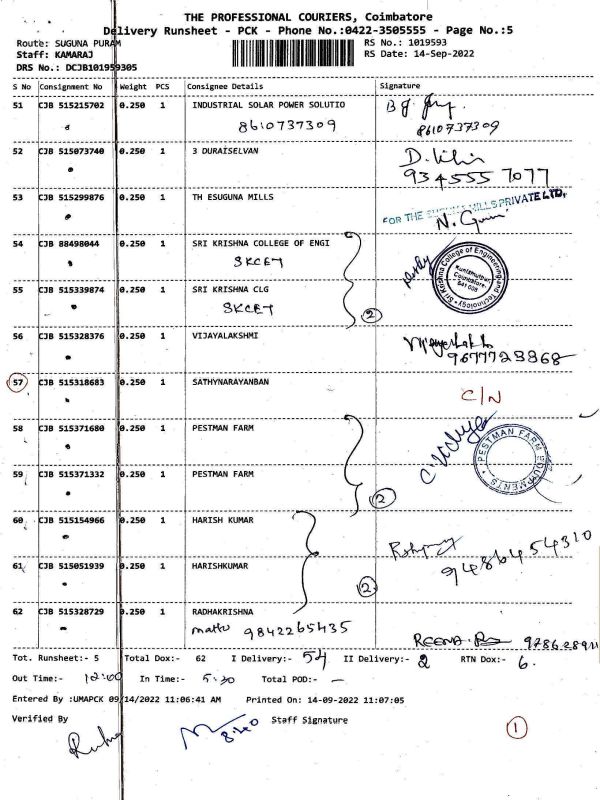 THE PROFESSIONAL COURIERS, Coimbatore
Delivery Runsheet - PCK - Phone No.:0422-3505555 - Page No.:5
Route: SUGUNA PURAM
RS No.: 1019593
Staff: KAMARAJ
RS Date: 14-Sep-2022
DRS No.: DCJB101959305
S No Consignment No Weight PCS Consignee Details Signature
51 CJB 515215702 0.250 1 INDUSTRIAL SOLAR POWER SOLUTIO
8610737309 8610737309
52 CJB 515073740 0.250 1 3 DURAISELVAN
934555 7077
53 CJB 515299876 0.250 1 TH ESUGUNA MILLS
FOR THE SUGUNA MILLS PRIVATE LTD.
54 CJB 88498044 0.250 1 SRI KRISHNA COLLEGE OF ENGI
SKCET
Sri Krishna College of Engineering and Technology
Kuniamuthur Coimbatore- 641 008
55 CJB 515339874 0.250 1 SRI KRISHNA CLG
SKCET
2
56 CJB 515328376 0.250 1 VIJAYALAKSHMI
9677723868
57 CJB 515318683 0.250 1 SATHYNARAYANBAN
C/N
58 CJB 515371680 0.250 1 PESTMAN FARM
PESTMAN FARM EQUIPMENTS
59 CJB 515371332 0.250 1 PESTMAN FARM
2
60 CJB 515154966 0.250 1 HARISH KUMAR
9486454310
61 CJB 515051939 0.250 1 HARISHKUMAR
2
62 CJB 515328729 0.250 1 RADHAKRISHNA
9842265435
REENA
Tot. Runsheet:- 5 Total Dox:- 62 I Delivery:- 54 II Delivery:- 2 RTN Dox:- 6.
Out Time:- 12:00 In Time:- 5.30 Total POD:- —
Entered By :UMAPCK 09/14/2022 11:06:41 AM Printed On: 14-09-2022 11:07:05
Verified By Staff Signature
1